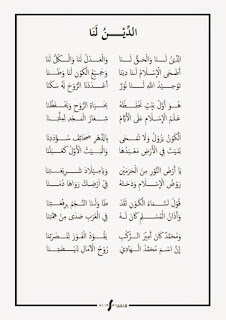 الدِّيْـــنُ لَنَا
الدِّينُ لَنَا وَالْحَقُّ لَنَا وَالْعَدْلُ لَنَا وَالْكُلُّ لَنَا
أَضْحَى الإِسْلَامُ لَنَا دِينًا وَجَمِيعُ الْكَوْنِ لَنَا وَطَنَا
تَوْحِيدُ اللهِ لَنَا نُورٌ أَعْدَدْنَا الرُّوحَ لَهُ سَكَنَا
هُوَ أَوَّلُ بَيْتٍ نَحْفَظُهُ بِحَيَاةِ الرُّوحِ وَيَحْفَظُنَا
عَلَمُ الإِسْلَامِ عَلَى الأَيَّامِ شِعَارُ الْمَجْدِ لِمِلَّتِنَا
الْكَوْنُ يَزُولُ وَلَا تُمْحَى بِالدَّهْرِ صَحَائِفُ سُؤْدَدِنَا
بُنِيَتْ فِي الأَرْضِ مَعَابِدُهَا وَالْبَيْتُ الأَوَّلُ كَعْبَتُنَا
يَا أَرْضَ النُّورِ مِنَ الْحَرَمَيْنِ وَيَا مِيلَادَ شَرِيعَتِنَا
رَوْضُ الإِسْلَامِ وَدَوْحَتُهُ فِي أَرْضِكِ رَوَّاهَا دَمُنَا
لِسَمَاءِ الْكَوْنِ لَقَدْ طَاوَلْنَا النَّجْمَ بِرِفْعَتِنَا
وَأَذَانُ الْمُسْلِمِ كَانَ لَهُ فِي الْغَرْبِ صَدًى مِنْ هِمَّتِنَا
وَمُحَمَّدُ كَانَ أَمِيرَ الرَّكْبِ يَقُودُ الْفَوْزَ لِنُصْرَتِنَا
إِنَّ اسْمَ مُحَمَّدٍ الْهَادِي رُوحُ الآمَالِ لِنَهْضَتِنَا